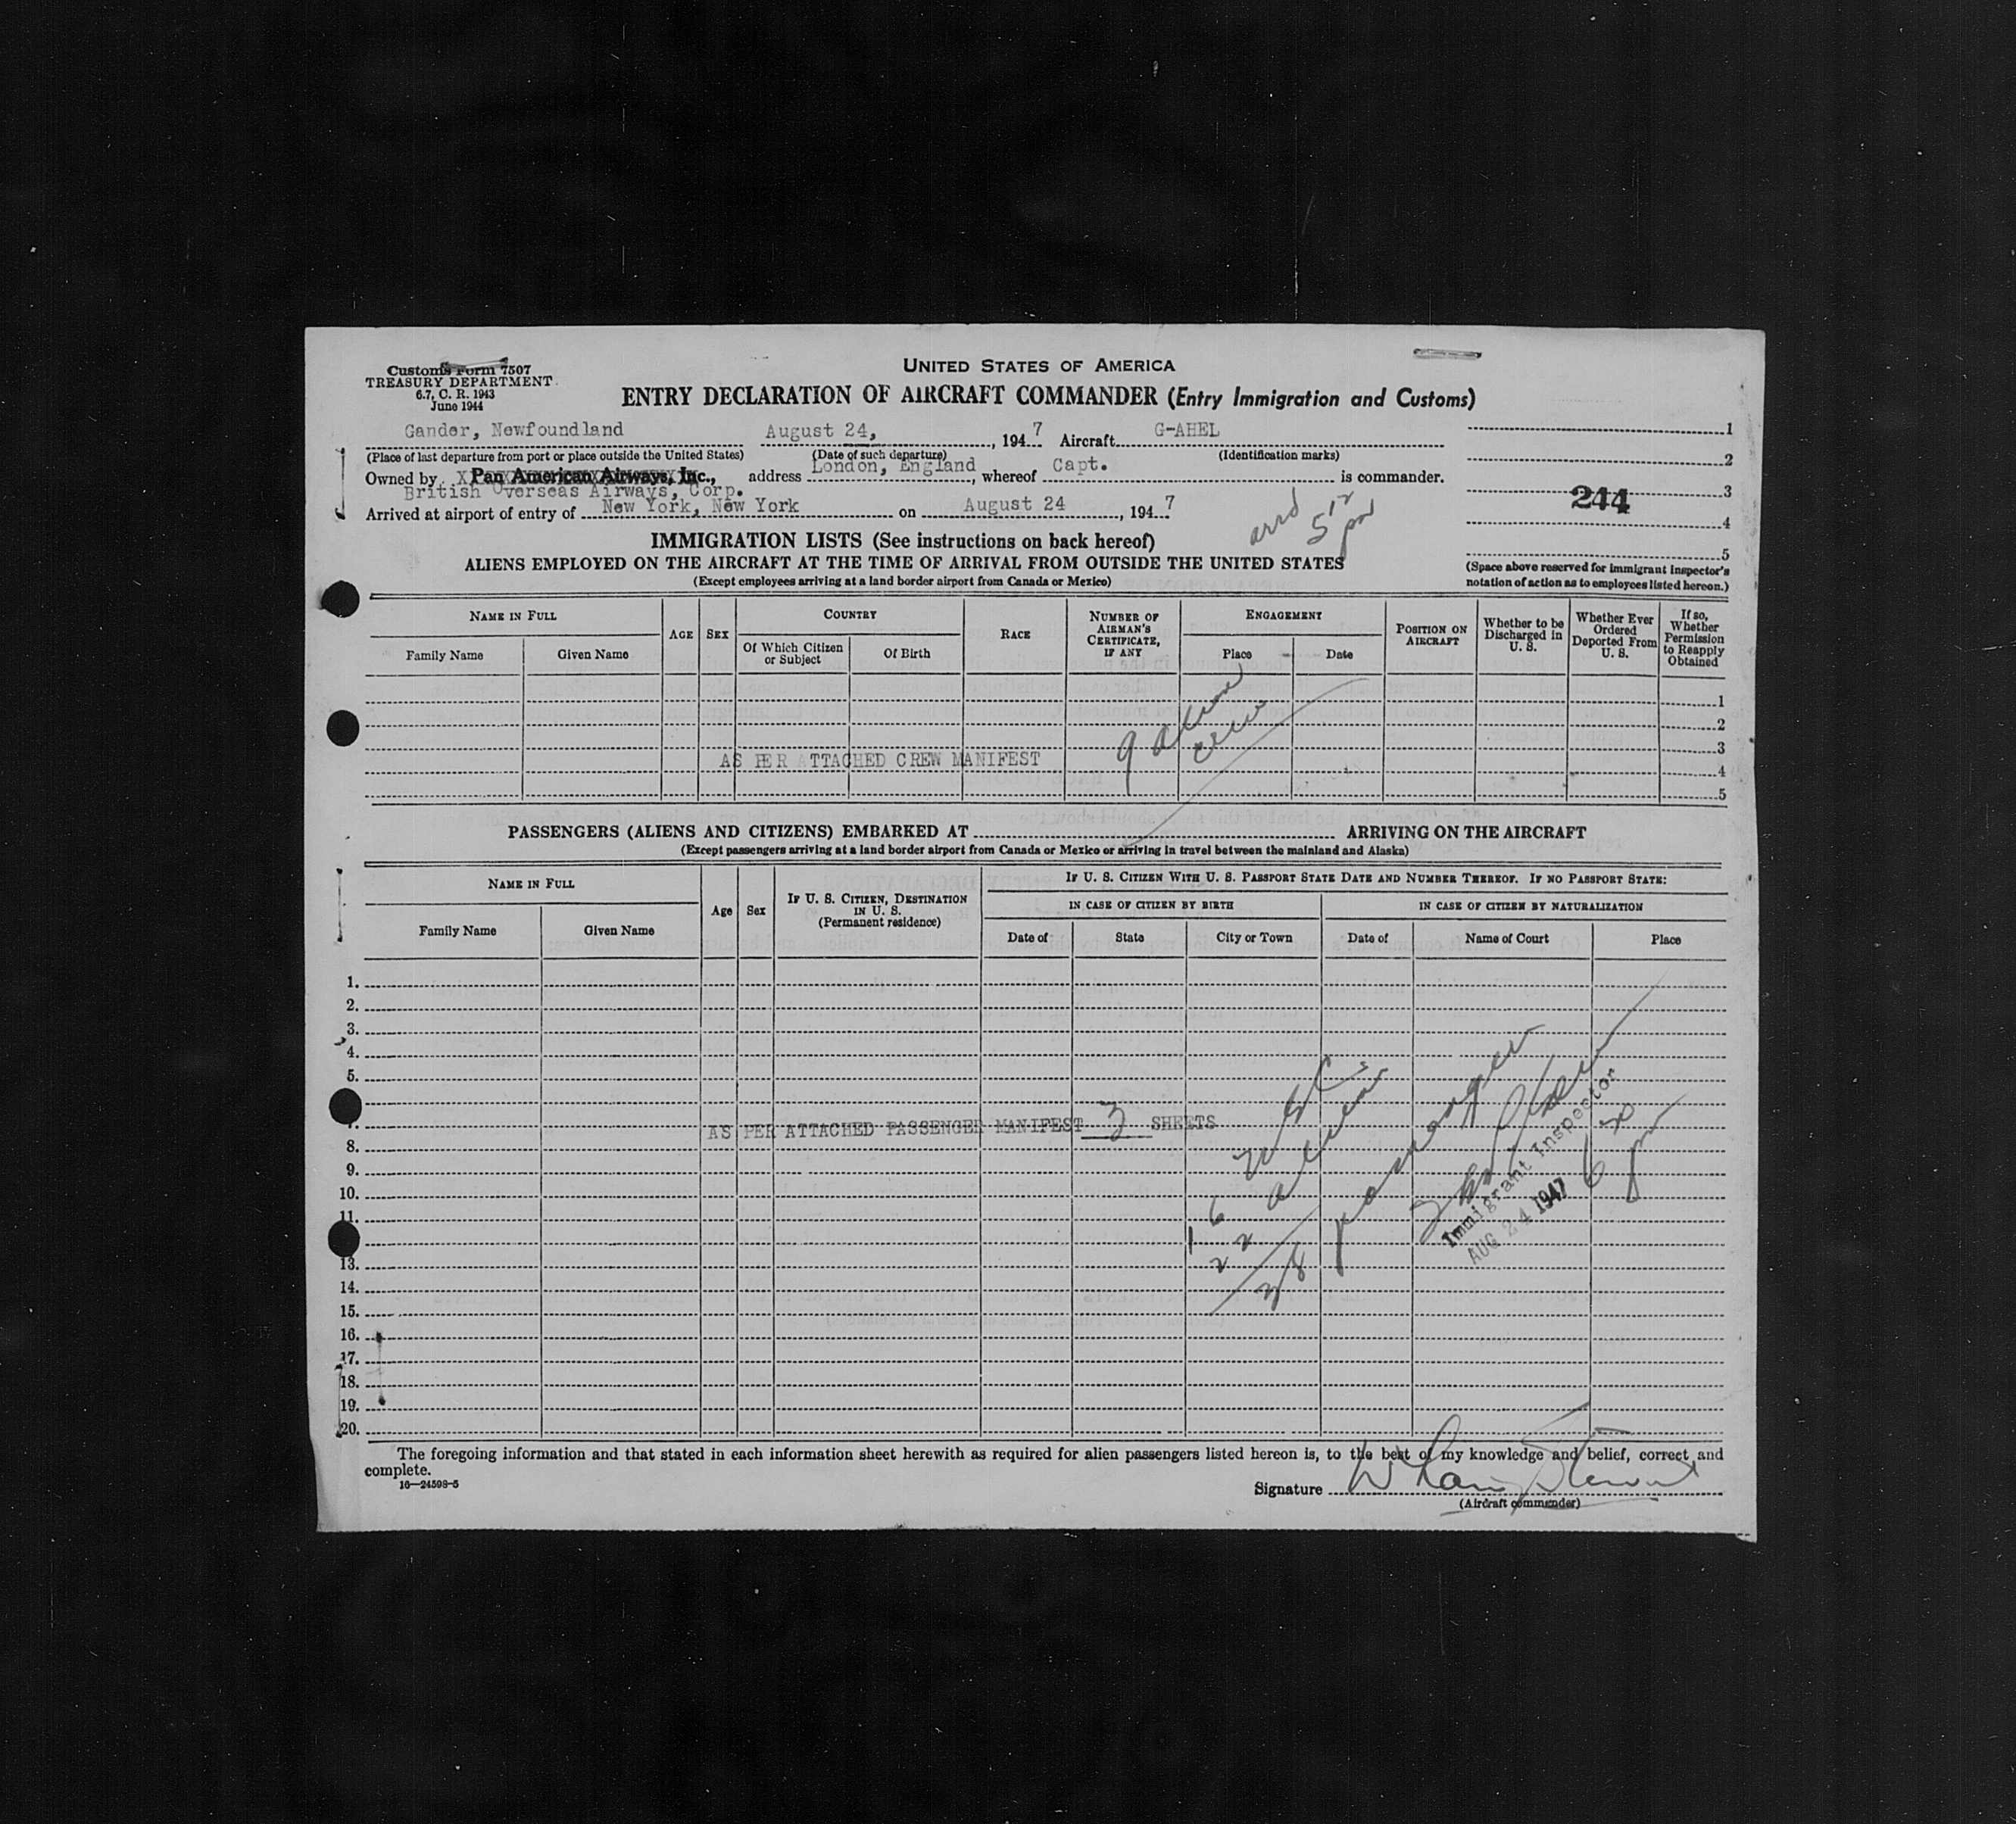 Customs Form 7507
TREASURY DEPARTMENT
6.7, C. R. 1943
June 1944
UNITED STATES OF AMERICA
ENTRY DECLARATION OF AIRCRAFT COMMANDER (Entry Immigration and Customs)
Gander, Newfoundland August 24, , 1947 Aircraft G-AHEL
(Place of last departure from port or place outside the United States) (Date of such departure) (Identification marks)
Owned by Pan American Airways, Inc., address London, England, whereof Capt. is commander.
British Overseas Airways, Corp.
Arrived at airport of entry of New York, New York on August 24, 1947
arrd 5 12 pm
1
2
244 3
4
5
(Space above reserved for immigrant inspector's
notation of action as to employees listed hereon.)
IMMIGRATION LISTS (See instructions on back hereof)
ALIENS EMPLOYED ON THE AIRCRAFT AT THE TIME OF ARRIVAL FROM OUTSIDE THE UNITED STATES
(Except employees arriving at a land border airport from Canada or Mexico)
NAME IN FULL
Family Name Given Name
AGE
SEX
COUNTRY
Of Which Citizen or Subject Of Birth
RACE
NUMBER OF AIRMAN'S CERTIFICATE, IF ANY
ENGAGEMENT
Place Date
POSITION ON AIRCRAFT
Whether to be Discharged in U. S.
Whether Ever Ordered Deported From U. S.
If so, Whether Permission to Reapply Obtained
1
2
3
AS PER ATTACHED CREW MANIFEST
9 alien crew
4
5
PASSENGERS (ALIENS AND CITIZENS) EMBARKED AT ARRIVING ON THE AIRCRAFT
(Except passengers arriving at a land border airport from Canada or Mexico or arriving in travel between the mainland and Alaska)
NAME IN FULL
Family Name Given Name
Age
Sex
IF U. S. CITIZEN, DESTINATION IN U. S.
(Permanent residence)
IF U. S. CITIZEN WITH U. S. PASSPORT STATE DATE AND NUMBER THEREOF. IF NO PASSPORT STATE:
IN CASE OF CITIZEN BY BIRTH IN CASE OF CITIZEN BY NATURALIZATION
Date of State City or Town Date of Name of Court Place
1.
2.
3.
4.
5.
7.
AS PER ATTACHED PASSENGER MANIFEST 3 SHEETS
8.
9.
10.
11.
13.
14.
15.
16.
17.
18.
19.
20.
16 USC
22 aliens
38 passengers
Immigrant Inspector
AUG 24 1947
The foregoing information and that stated in each information sheet herewith as required for alien passengers listed hereon is, to the best of my knowledge and belief, correct and
complete.
16—24598-5
Signature
(Aircraft commander)